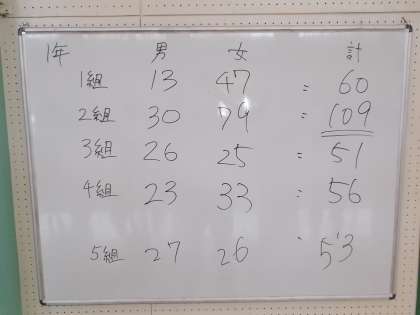 1年 男 女 計
1組 13 47 = 60
2組 30 79 = 109
3組 26 25 = 51
4組 23 33 = 56
5組 27 26 53